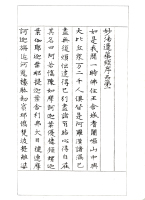 妙法蓮華經序品第一
如是我聞一時佛住王舍城耆闍崛山中與
大比丘衆万二千人俱皆是阿羅漢諸漏已
盡無復煩惱逮得己利盡諸有結心得自在
其名曰阿若憍陳如摩訶迦葉優樓頻螺迦
葉伽耶迦葉那提迦葉舍利弗大目揵連摩
訶迦旃延阿㝹樓馱劫賓那憍梵波提離婆